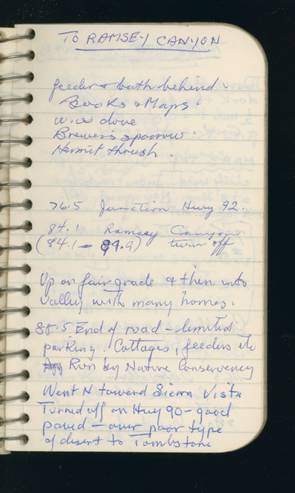 TO RAMSEY CANYON
feeder & bath behind
Books & Maps
W.W dove
Brewer's sparrow
Hermit thrush
76.5 Junction Hwy 92.
84.1 Ramsey Canyon
(84.1 – 89.9) turn off
Up on fair grade & then into
valley with many homes.
88.5 End of road – limited
parking, Cottages, feeders etc
Run by Nature Conservency
Went N toward Sierra Vista
Turned off on Hwy 90 – good
paved – over poor type
of desert to Tombstone